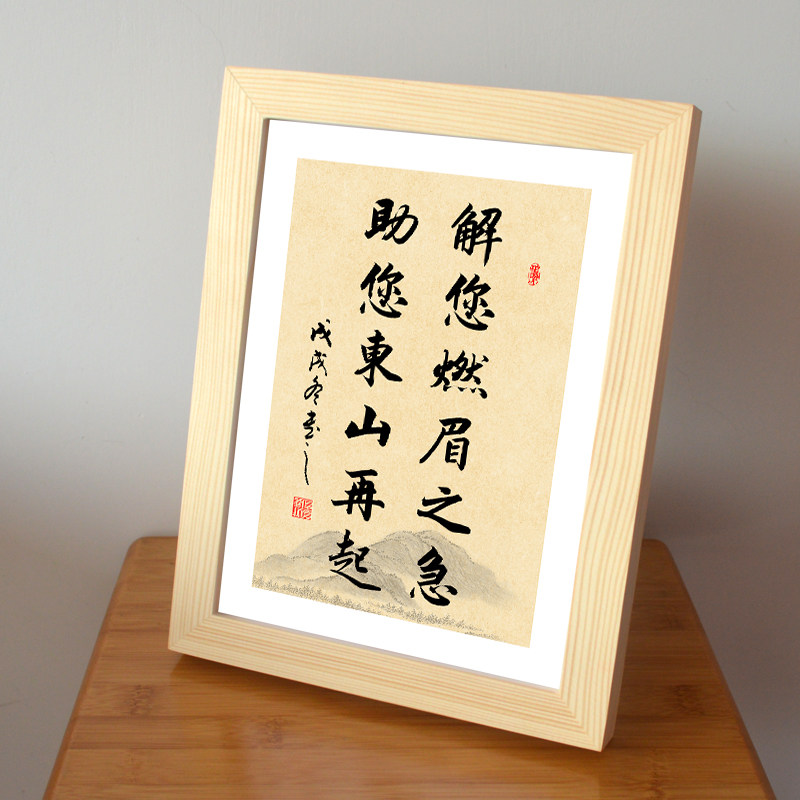 解您燃眉之急
助您東山再起
戊戌冬